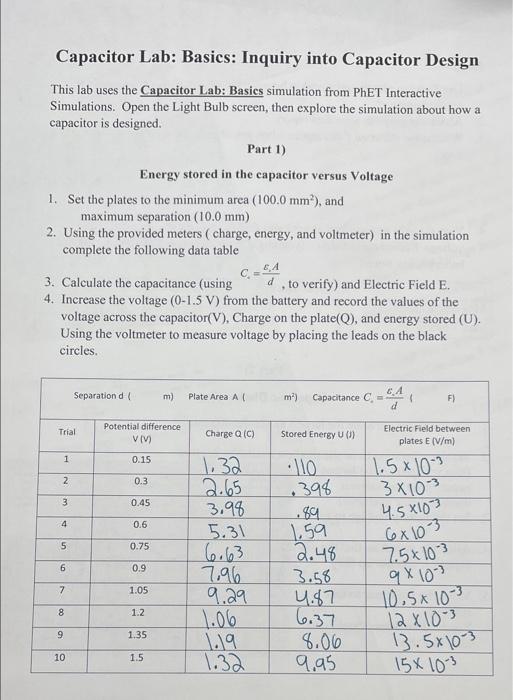 Capacitor Lab: Basics: Inquiry into Capacitor Design
This lab uses the Capacitor Lab: Basics simulation from PhET Interactive
Simulations. Open the Light Bulb screen, then explore the simulation about how a
capacitor is designed.
Part 1)
Energy stored in the capacitor versus Voltage
1. Set the plates to the minimum area (100.0 mm²), and
maximum separation (10.0 mm)
2. Using the provided meters ( charge, energy, and voltmeter) in the simulation
complete the following data table
3. Calculate the capacitance (using C₀ = ε₀A/d , to verify) and Electric Field E.
4. Increase the voltage (0-1.5 V) from the battery and record the values of the
voltage across the capacitor(V), Charge on the plate(Q), and energy stored (U).
Using the voltmeter to measure voltage by placing the leads on the black
circles.
Separation d ( m) Plate Area A ( m²) Capacitance C₀ = ε₀A/d ( F)
Trial Potential difference V (V) Charge Q (C) Stored Energy U (J) Electric Field between plates E (V/m)
1 0.15 1.32 .110 1.5 x 10⁻³
2 0.3 2.65 .398 3 x 10⁻³
3 0.45 3.98 .89 4.5 x 10⁻³
4 0.6 5.31 1.59 6 x 10⁻³
5 0.75 6.63 2.48 7.5 x 10⁻³
6 0.9 7.96 3.58 9 x 10⁻³
7 1.05 9.29 4.87 10.5 x 10⁻³
8 1.2 1.06 6.37 12 x 10⁻³
9 1.35 1.19 8.06 13.5 x 10⁻³
10 1.5 1.32 9.95 15 x 10⁻³